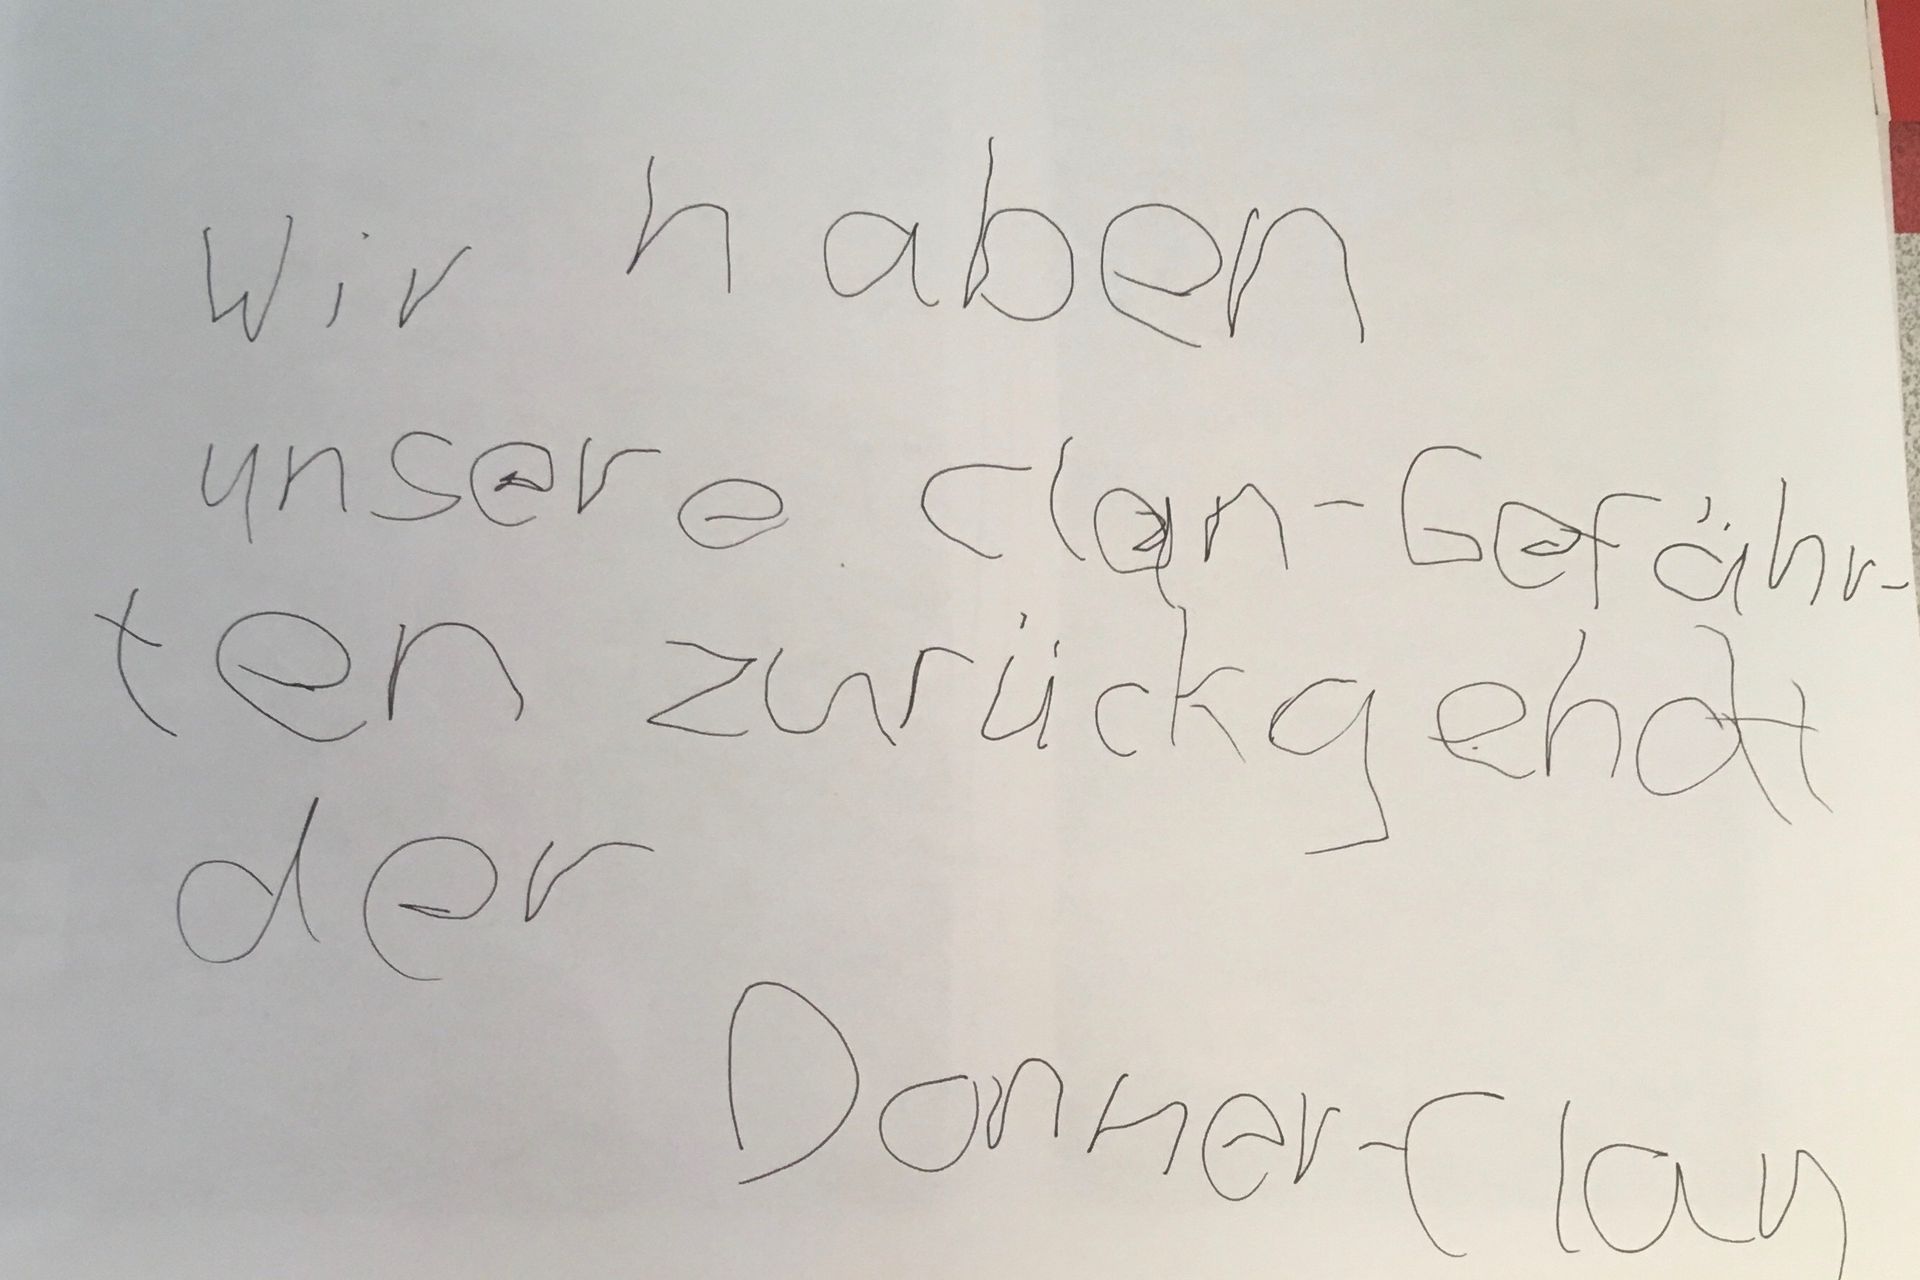 Wir haben
unsere Clan-Gefähr-
ten zurückgehdt
der
Donner-Clan